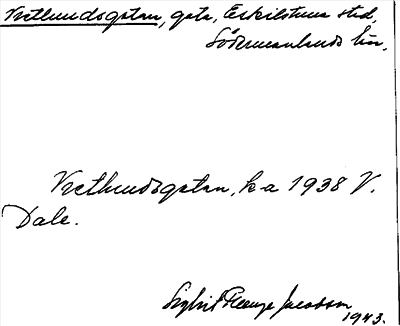 Vretlundsgatan, gata, Eskilstuna stad,
Södermanlands län.
Vretlundsgatan, k-a 1938 V.
Dale.
Sigbrit Plaenge Jacobson
1943.